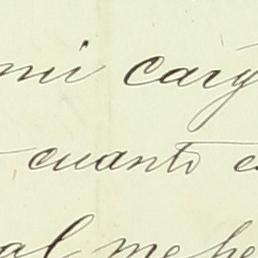 mi carg
cuanto e
al me he